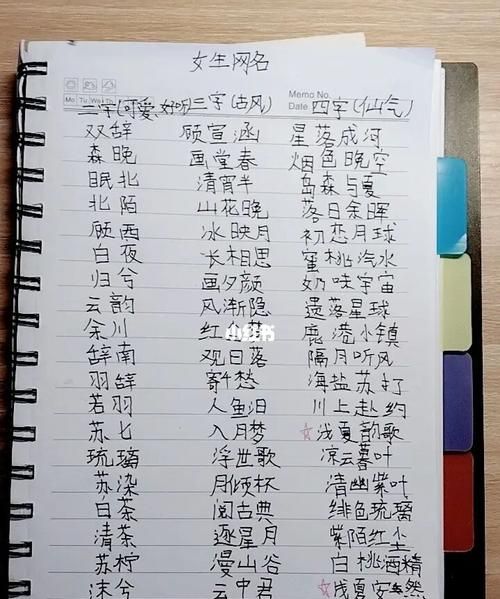 女生网名
Memo No.
Mo Tu We Thu
Date
二字(可爱、好听) 三字(古风) 四字(仙气)
双辞 顾宣涵 星落成河
森晚 画堂春 烟色晚空
眠北 清宵半 岛森与夏
北陌 山花晚 落日余晖
顾西 冰映月 初恋月球
白夜 长相思 蜜桃汽水
归兮 画夕颜 奶味宇宙
云韵 风渐隐 遗落星球
余川 红 梦 鹿港小镇
小红书
辞南 观日落 隔月听风
羽辞 寄千愁 海盐苏打
若羽 人鱼泪 川上赴约
苏七 入月梦 ☆浅夏韵歌
琉璃 浮世歌 凉云暮叶
苏染 月倾杯 清幽紫叶
白茶 阅古典 绯色琉璃
清茶 逐星月 紫陌红尘
苏柠 漫山谷 白桃酒精
沫兮 云中君 ☆浅夏安然